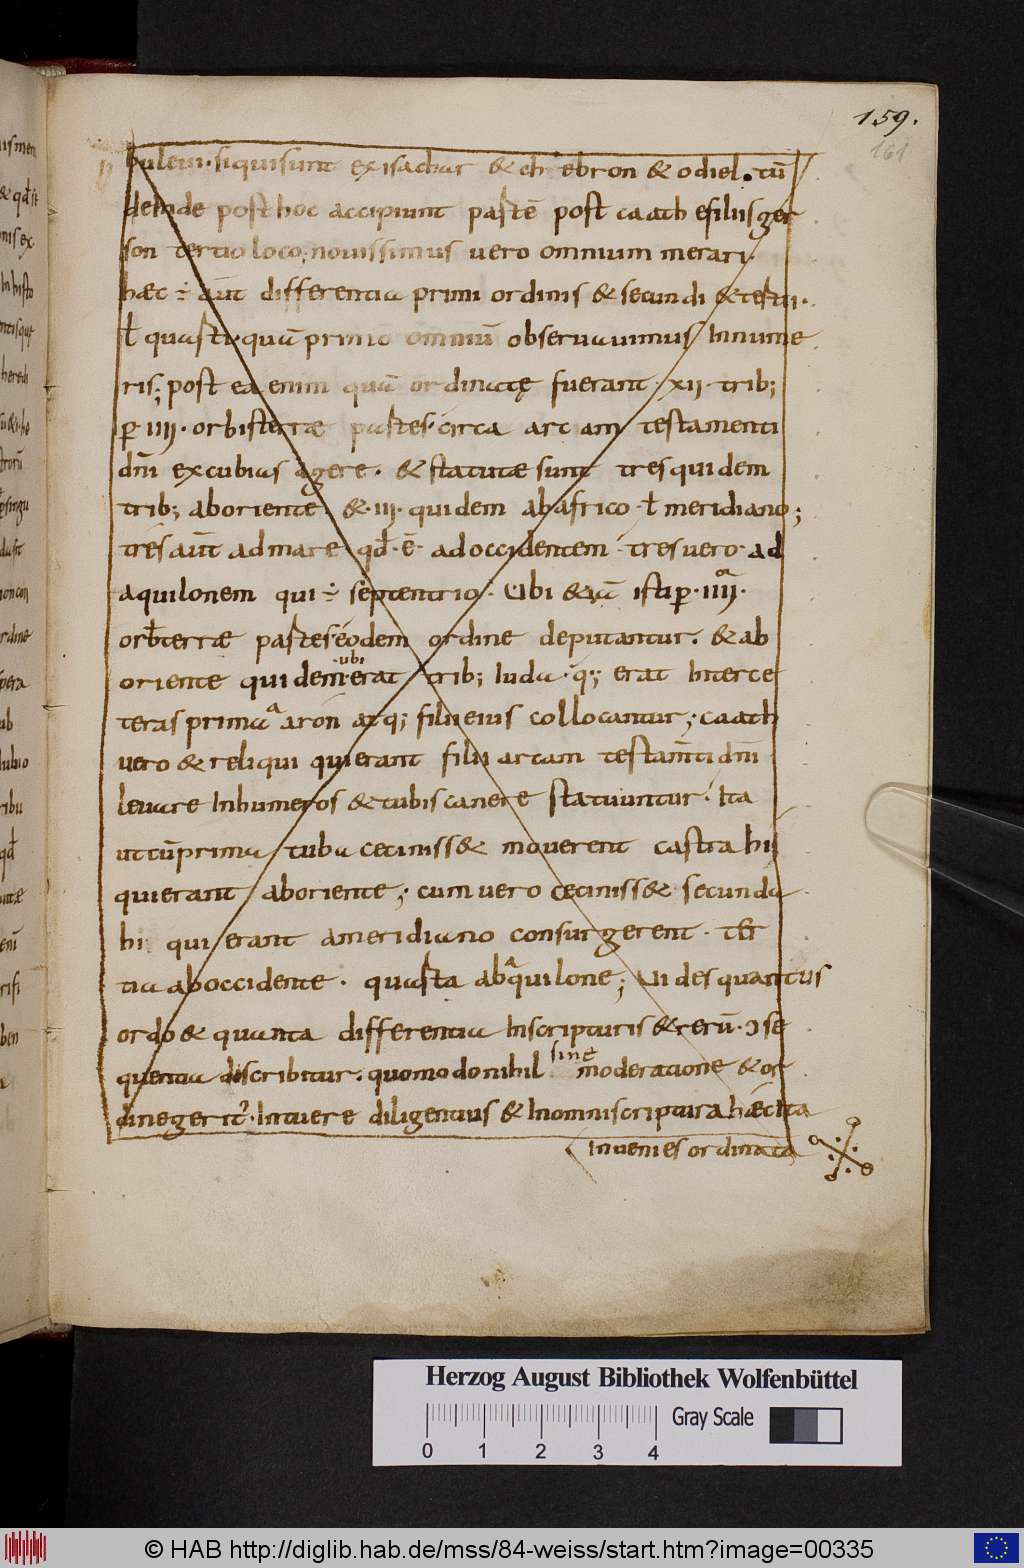 159.
161
buleui · siquisunt exisachar & chebron & odiel · tū
deinde post hoc accipiunt partē post caath & filiis ger
son tertio loco; nouissimus uero omnium merari ·
haec ÷ aūt differentia primi ordinis & secundi & tertii ·
ƚ quarti · quā primo omniū obseruauimus In nume
ris; post ea enim quā ordinatę fuerant · xii · trib;
ꝑ · iiii · orbis terrae partes · circa arcam testamenti
dn̄i excubias agere · & statutae sunt tres quidem
trib; ab oriente · & · iii · quidem ab africo · ƚ meridiano;
tres aūt ad mare · qđ · ē · ad occidentem · tres uero · ad
aquilonem qui ÷ septentrio · Ubi & iā isti ꝑ · iiii ·
orb terrae partes eodem ordine deputantur · & ab
oriente quidem · ubi erat trib; Iuda · q; erat Interce
teras prima aron atq; filii eius collocantur; caath
uero & reliqui qui erant filii arcam testam̄ti dn̄i
leuare In humeros & tubis canere statuuntur · Ita
ut cū prima tuba ceciniss& mouerent castra hii
qui erant ab oriente; cum uero ceciniss& secunda ·
hi qui erant a meridiano consurgerent · ter
tia ab occidente · quarta ab aquilone; Uides quantus
ordo & quanta differentia In scripturis & rerū · ɔse
quentia discribitur · quomodo nihil sine moderatione & or
dine gerit · Intuere diligentius & In omni scriptura haec Ita
Inuenies ordinata
Herzog August Bibliothek Wolfenbüttel
0 1 2 3 4 Gray Scale
© HAB http://diglib.hab.de/mss/84-weiss/start.htm?image=00335